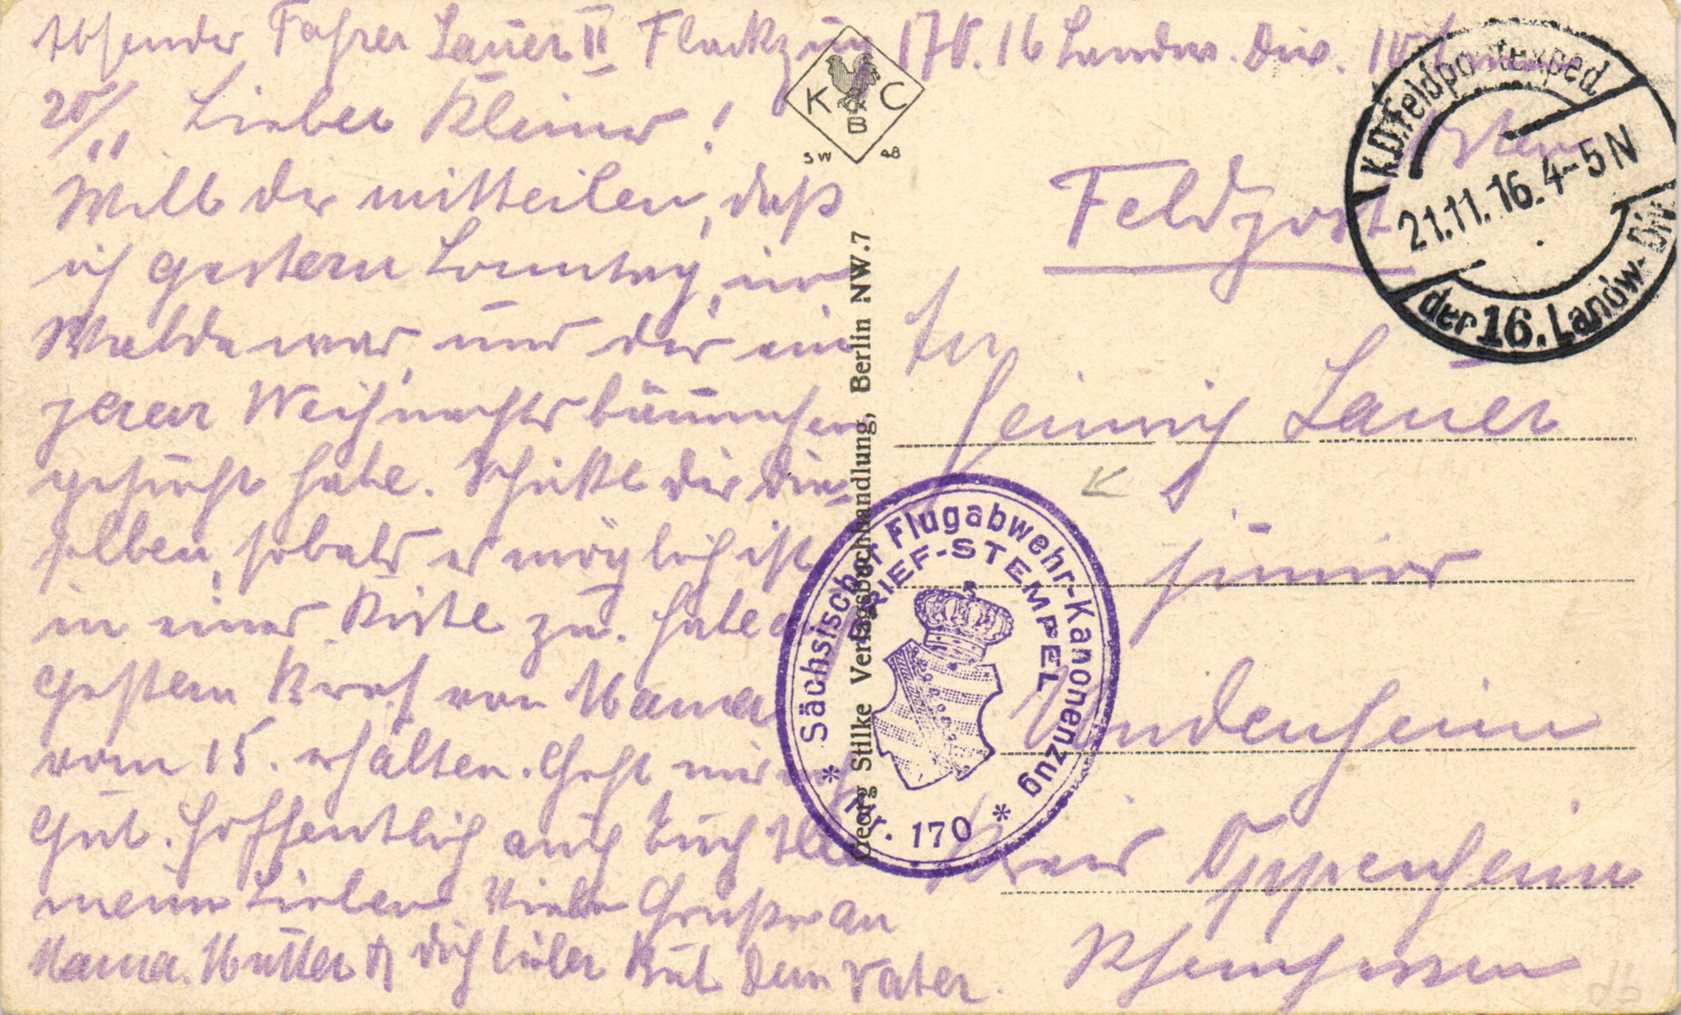 Absender Fahrer Lauer II Flackzug 170. 16 Landw. Div. 10
Osten
20/11 Lieber Kleiner!
Will dir mitteilen, daß
ich gestern Sonntag, im
Walde war, und dir ein
Weihnachtsbäumchen
gesucht habe. Schicke dir die-
selben, sobald es möglich ist
in einer Kiste zu. Habe
gestern Brief von Mama
vom 15. erhalten. Geht mir
Gut. Hoffentlich auch Euch Alle
meine Lieben Viele Grüße an
Mama. Mutter & dich lieber Bub dein Vater.
K C
B
SW 48
Georg Stilke Verlagsbuchhandlung, Berlin NW.7
K.D.Feldpostexped.
21.11.16. 4-5 N
der 16. Landw.-Div.
Feldpost
An
Heinrich Lauer
junior
Undenheim
Kreis Oppenheim
Rheinhessen
Sächsischer Flugabwehr-Kanonenzug
BRIEF-STEMPEL
* Nr. 170 *